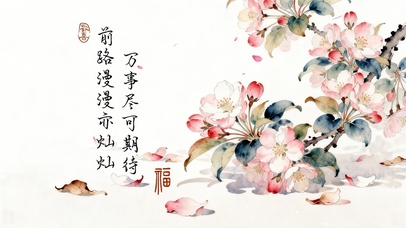 前路漫漫亦灿灿
万事尽可期待
福